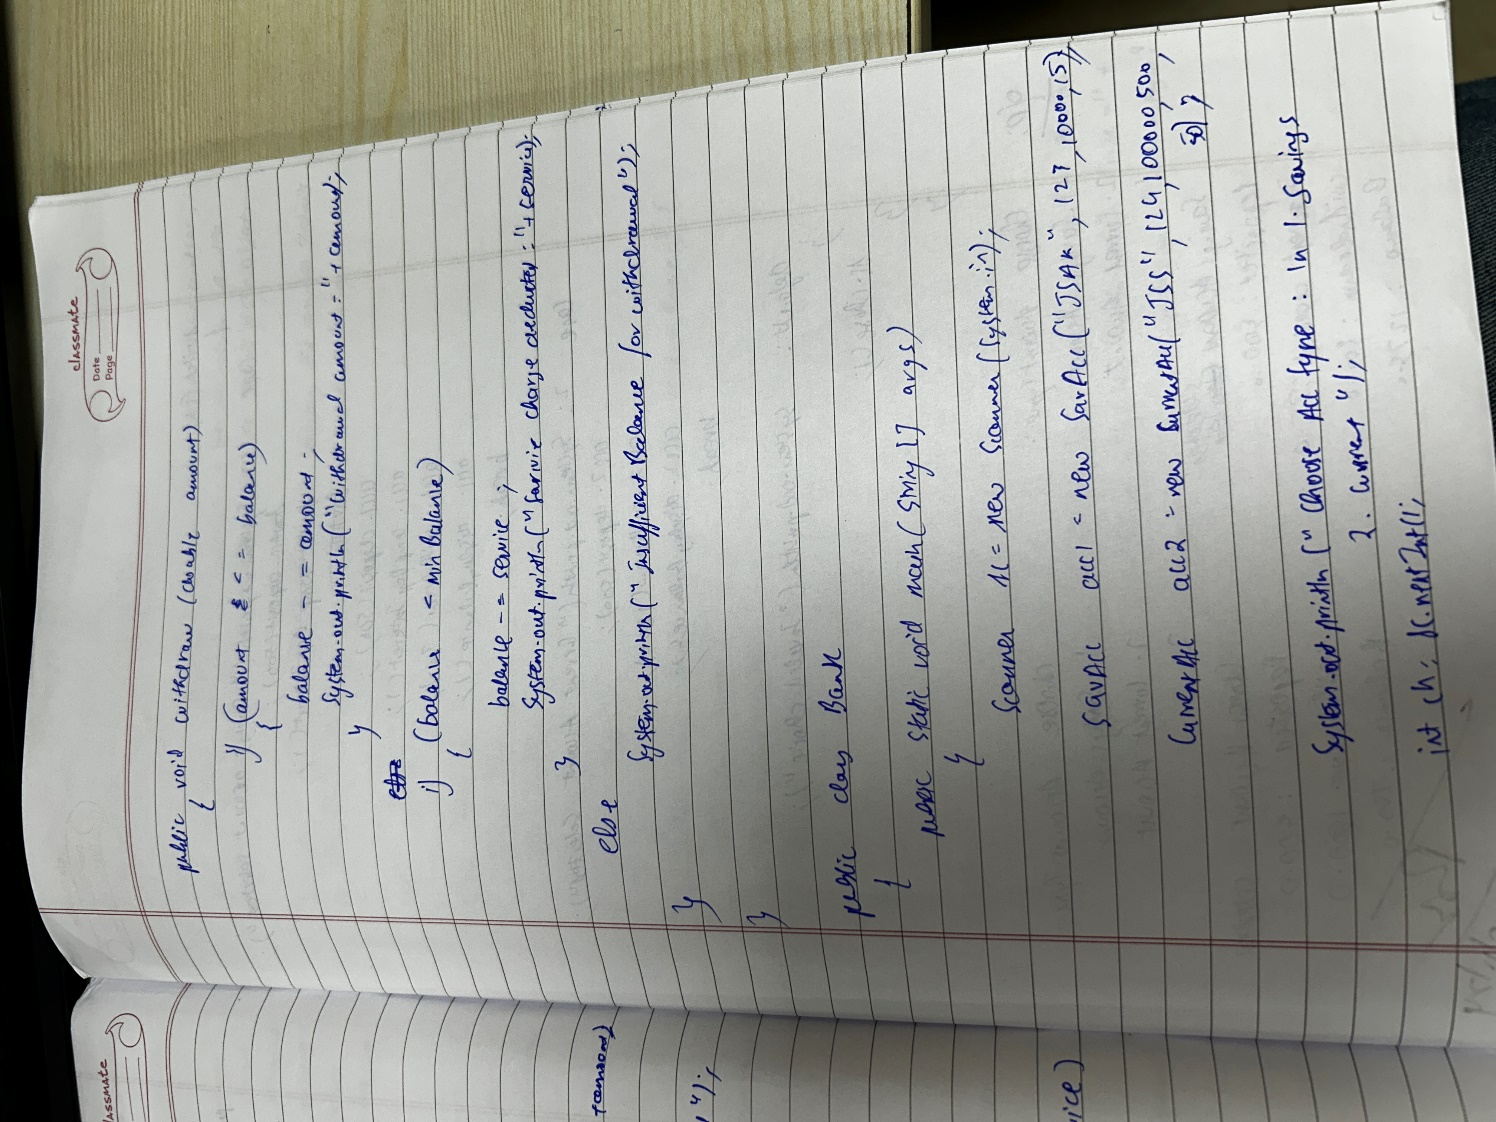 classmate
Date
Page
public void withdraw (double amount)
{
if (amount < = balance)
{
balance - = amount;
System.out.println("withdrawal amount = " + amount);
}
if (balance < minBalance)
{
balance -= service;
System.out.println("Service charge deducted: " + service);
}
else
System.out.println(" Insufficient Balance for withdrawal");
}
}
public class Bank
{
public static void main(String [] args)
{
Scanner = new Scanner (System.in);
SavAcc acc1 = new SavAcc("JSAK", 123, 10000, 5);
CurrentAcc acc2 = new CurrentAcc("JSS", 124, 100000, 500,
50);
System.out.println (" Choose Acc type : \n 1. Savings
2. Current ");
int ch = sc.nextInt();
assmate
+ amount)
");
vice)